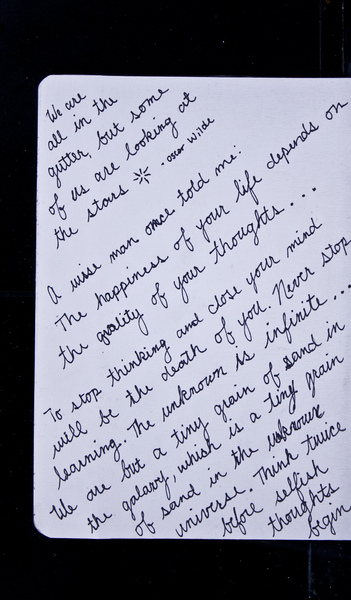 We are
all in the
gutter, but some
of us are looking at
the stars
- Oscar Wilde
A wise man once told me:
The happiness of your life depends on
the quality of your thoughts...
To stop thinking and close your mind
will be the death of you. Never stop
learning. The unknown is infinite...
We are but a tiny grain of sand in
the galaxy, which is a tiny grain
of sand in the unknown
universe. Think twice
before selfish
thoughts
begin